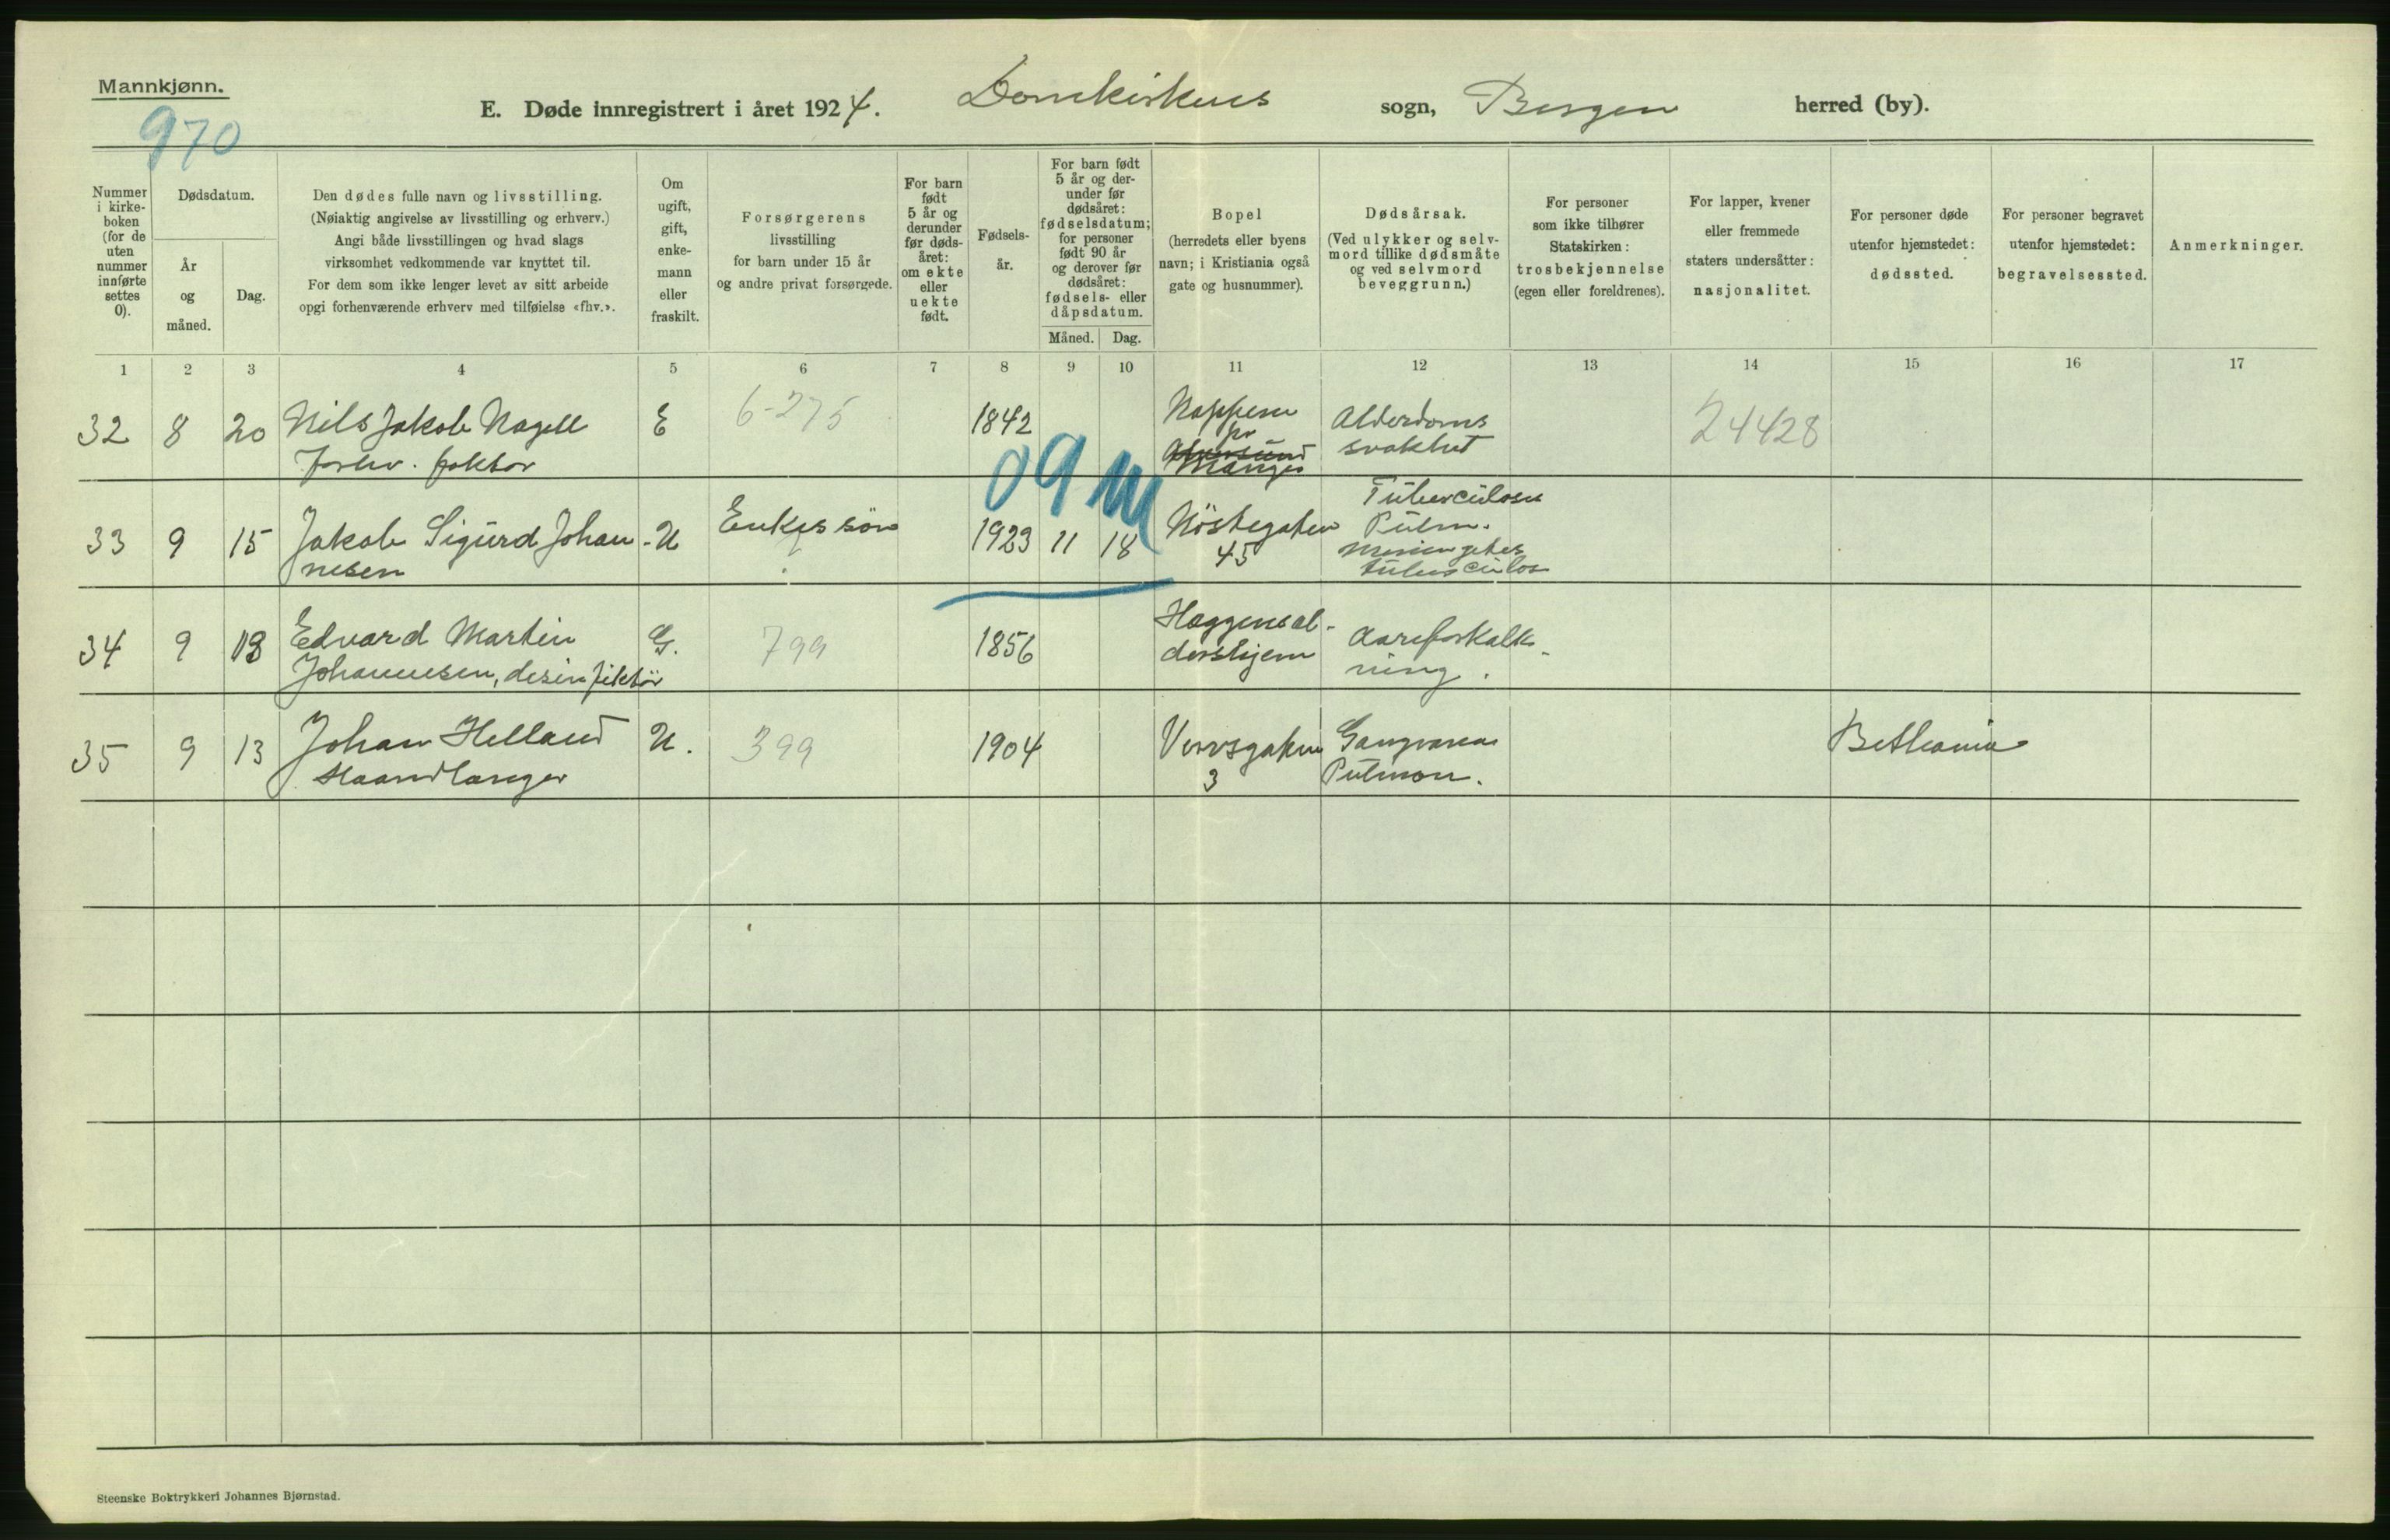 Mannkjønn.
970
E. Døde innregistrert i året 1924. Domkirkens sogn, Bergen herred (by).
Nummer i kirke- boken (for de uten nummer innførte settes 0).
Dødsdatum.
År og måned.
Dag.
Den dødes fulle navn og livsstilling.
(Nøiaktig angivelse av livsstilling og erhverv.)
Angi både livsstillingen og hvad slags
virksomhet vedkommende var knyttet til.
For dem som ikke lenger levet av sitt arbeide
opgi forhenværende erhverv med tilføielse «fhv.».
Om ugift, gift, enke- mann eller fraskilt.
Forsørgerens
livsstilling
for barn under 15 år
og andre privat forsørgede.
For barn født 5 år og derunder før døds- året: om ekte eller uekte født.
Fødsels- år.
For barn født 5 år og der- under før dødsåret: fødselsdatum; for personer født 90 år og derover før dødsåret: fødsels- eller dåpsdatum.
Måned. Dag.
Bopel
(herredets eller byens
navn; i Kristiania også
gate og husnummer).
Dødsårsak.
(Ved ulykker og selv-
mord tillike dødsmåte
og ved selvmord
beveggrunn.)
For personer
som ikke tilhører
Statskirken:
trosbekjennelse
(egen eller foreldrenes).
For lapper, kvener
eller fremmede
staters undersåtter:
nasjonalitet.
For personer døde
utenfor hjemstedet:
dødssted.
For personer begravet
utenfor hjemstedet:
begravelsessted.
Anmerkninger.
1 2 3 4 5 6 7 8 9 10 11 12 13 14 15 16 17
32 8 20 Nils Jakob Nagell E 6-275 1842 Alderdoms 24428
forhv. faktor pr svakhet
Manger
09 M
33 9 15 Jakob Sigurd Johan- U Enkes sön 1923 11 18 Nöstegaten Tuberculosis
nesen ? 45 Pulm.
Meningites
tuberculos
34 9 13 Edvard Martin G. 799 1856 Haggensal- Aareforkalk-
Johannesen, desinfektör dershjem ning.
35 9 13 Johan Helland U. 399 1904 Vervsgaten Gangræna Bethania
Haandlanger 3 Pulmon.
Steenske Boktrykkeri Johannes Bjørnstad.